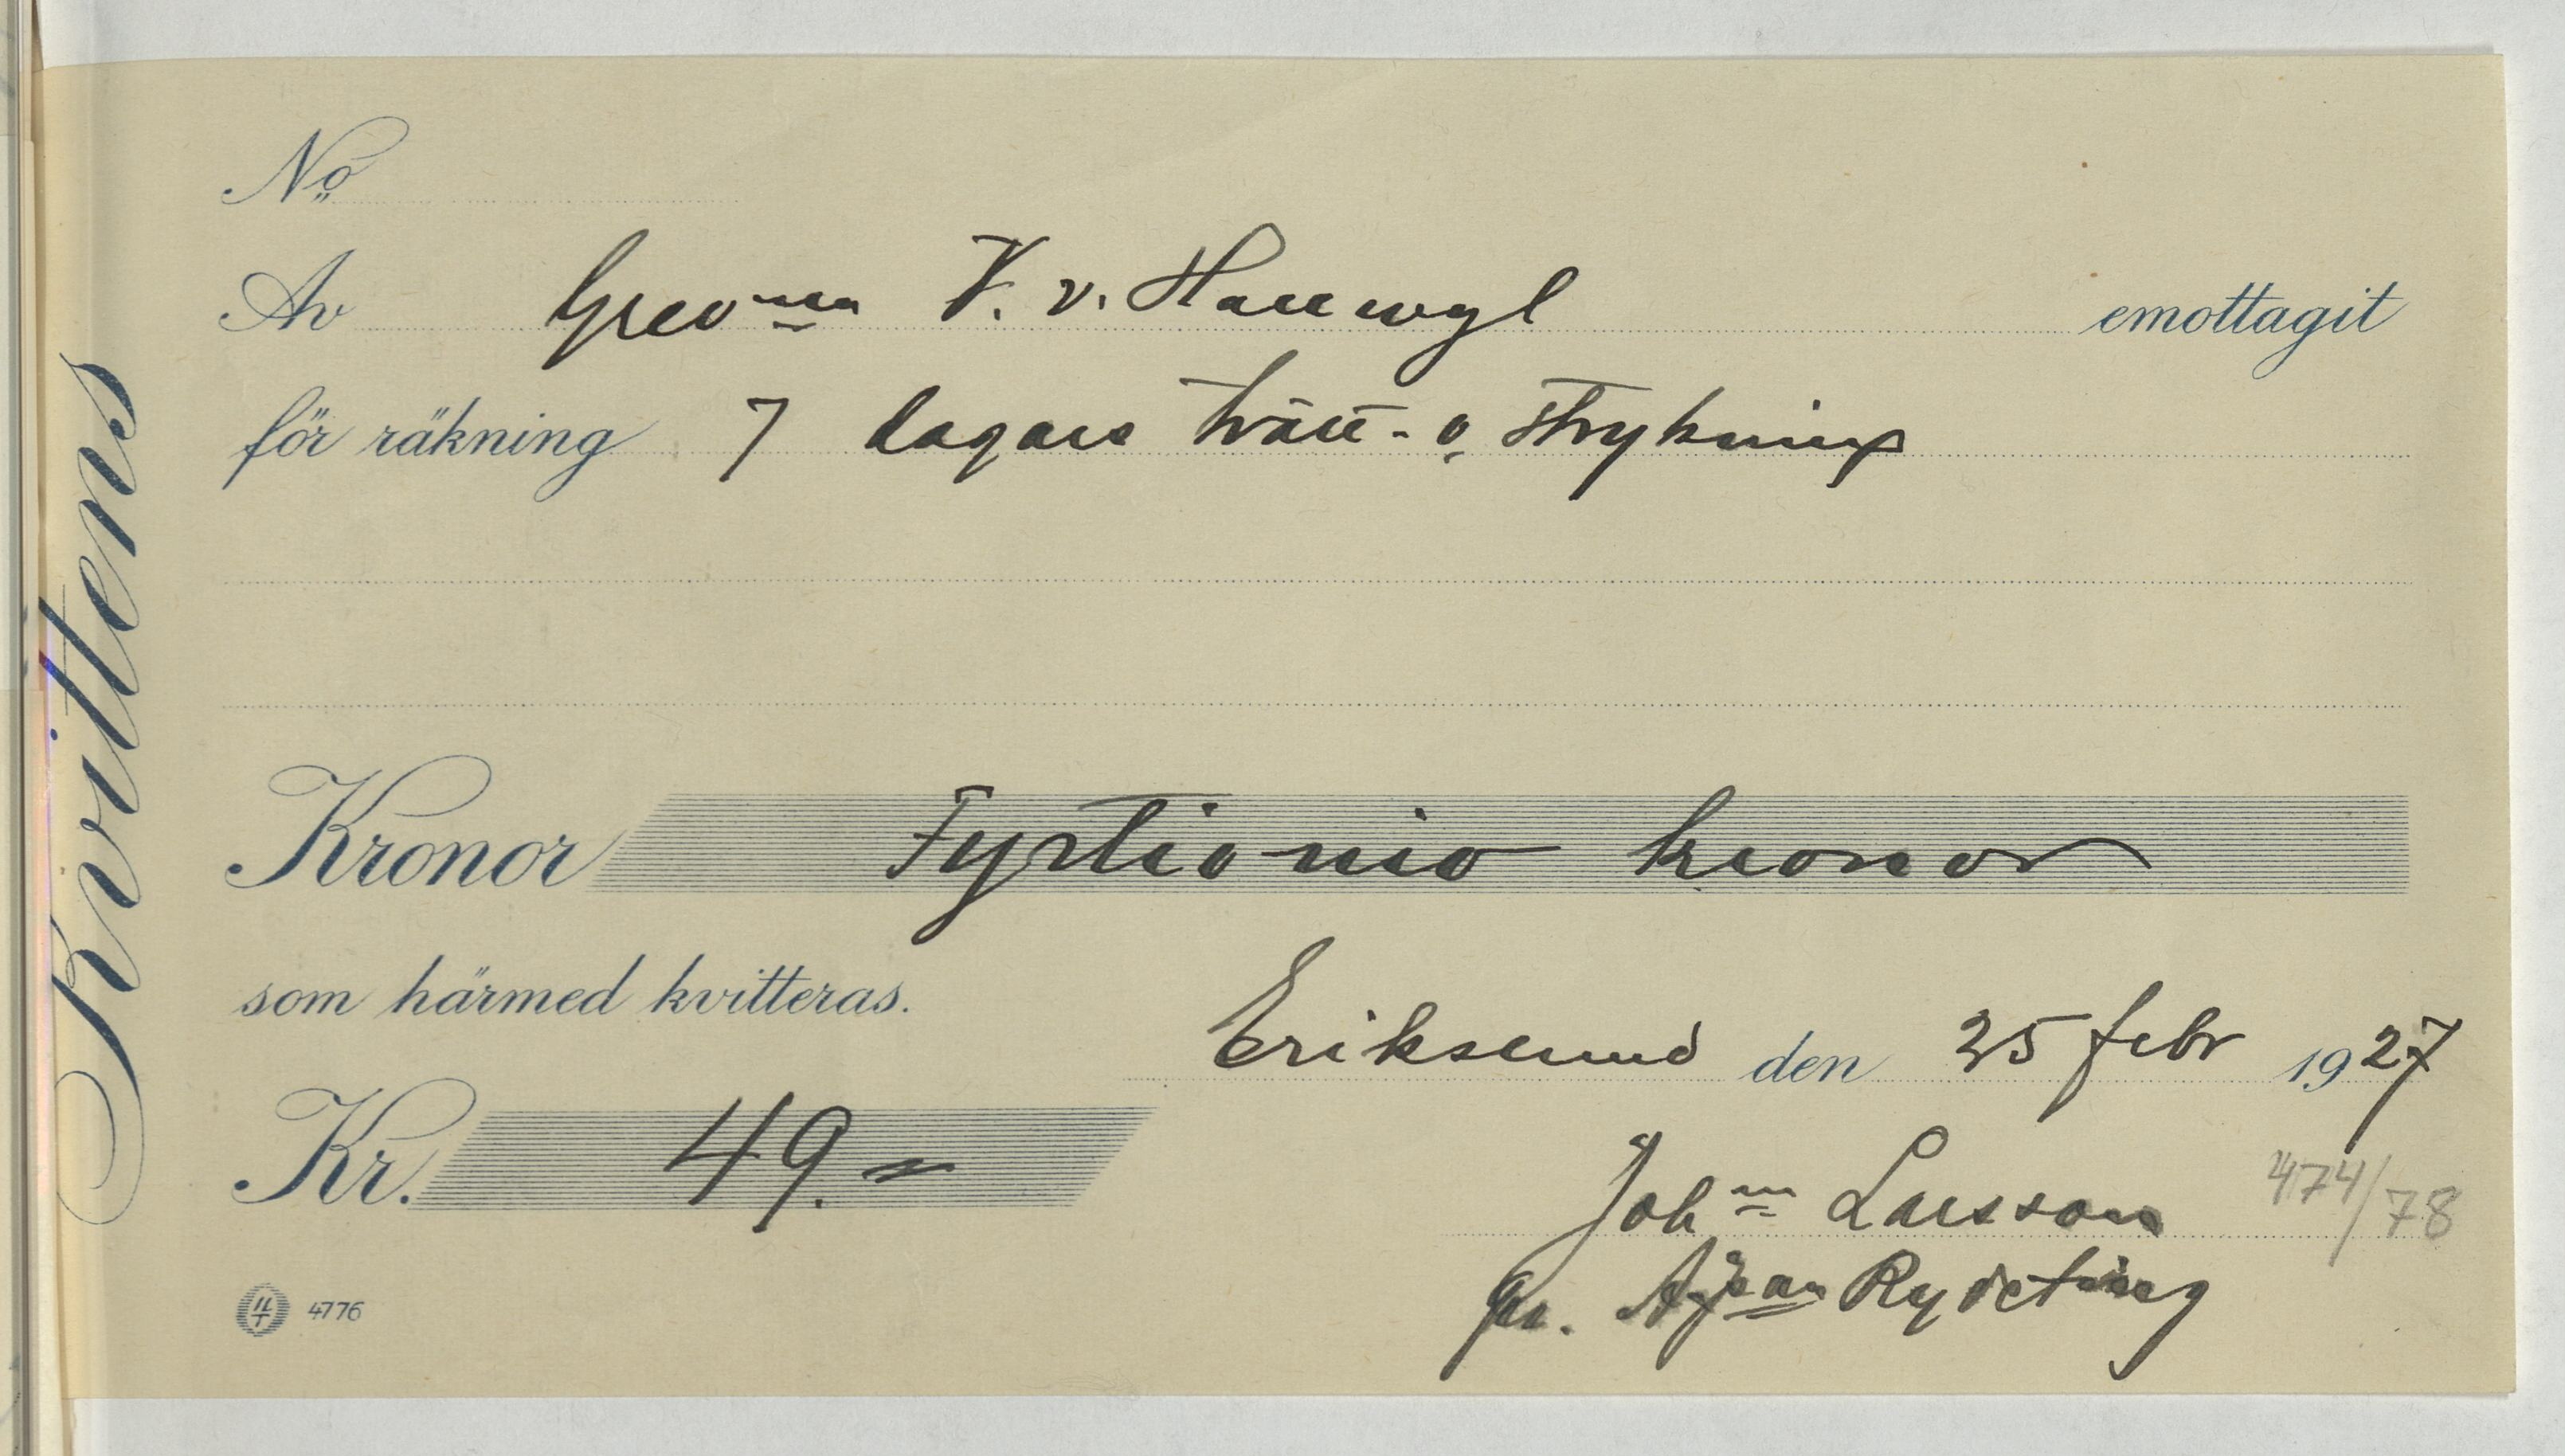 Kvittens
No
Av Grevinnan V. v. Hallwyl emottagit
för räkning 7 dagars tvätt- o. strykning
Kronor Fyrtionio kronor
som härmed kvitteras.
Eriksund den 25 febr 1927
Kr. 49.=
Johan Larsson
474/78
gm.
4776